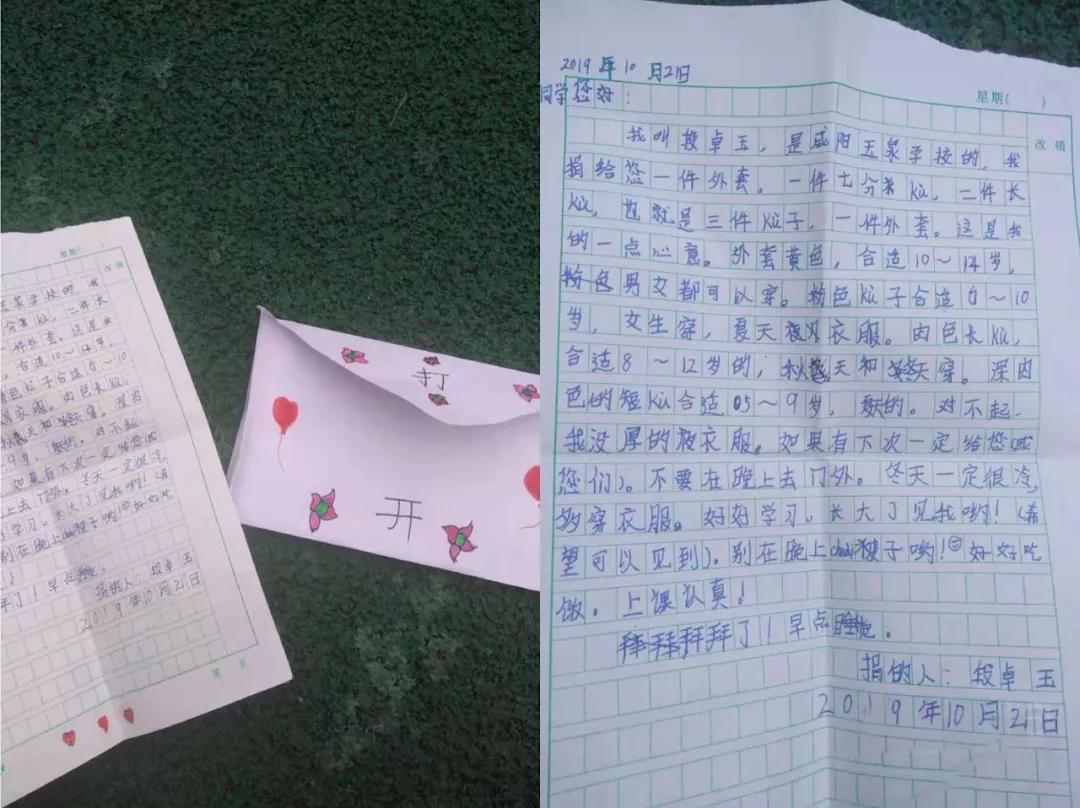 星期( )
改错
玉泉学校的，我
分米kù，二件长
件外套。这是我
，合适10～14岁，
色kù子合适6～10
衣服。白色长kù，
秋天和冬天穿。深肉
9岁，的。对不起，
如果有下次一定给您或
上去门外。冬天一定很冷，
学习。长大了见我哟！(希
别在晚上chuài被子哟！好好吃
拜了！早点睡觉。
捐的人：段卓玉
2019年10月21日
第 页
打
开
2019年10月21日
星期( )
同学您好：
改错
我叫段卓玉，是咸阳玉泉学校的，我
捐给您一件外套。一件七分米kù，二件长
kù，也就是三件kù子，一件外套。这是我
的一点心意。外套黄色，合适10～14岁，
粉色男女都可以穿。粉色kù子合适6～10
岁，女生穿，夏天衣服。白色长kù，
合适8～12岁的，秋天和冬天穿。深肉
色的短kù合适5～9岁，的。对不起，
我没厚的衣服。如果有下次一定给您(或
您们)。不要在晚上去门外。冬天一定很冷，
多穿衣服。好好学习。长大了见我哟！(希
望可以见到)。别在晚上chuài被子哟！好好吃
饭。上课认真！
拜拜拜拜了！早点睡觉。
捐的人：段卓玉
2019年10月21日